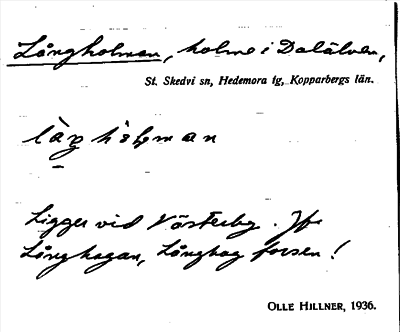 Långholman, holme i Dalälven,
St. Skedvi sn, Hedemora tg, Kopparbergs län.
Ligger vid Västerby. Jfr
Långhagan, Långhag forsen!
OLLE HILLNER, 1936.